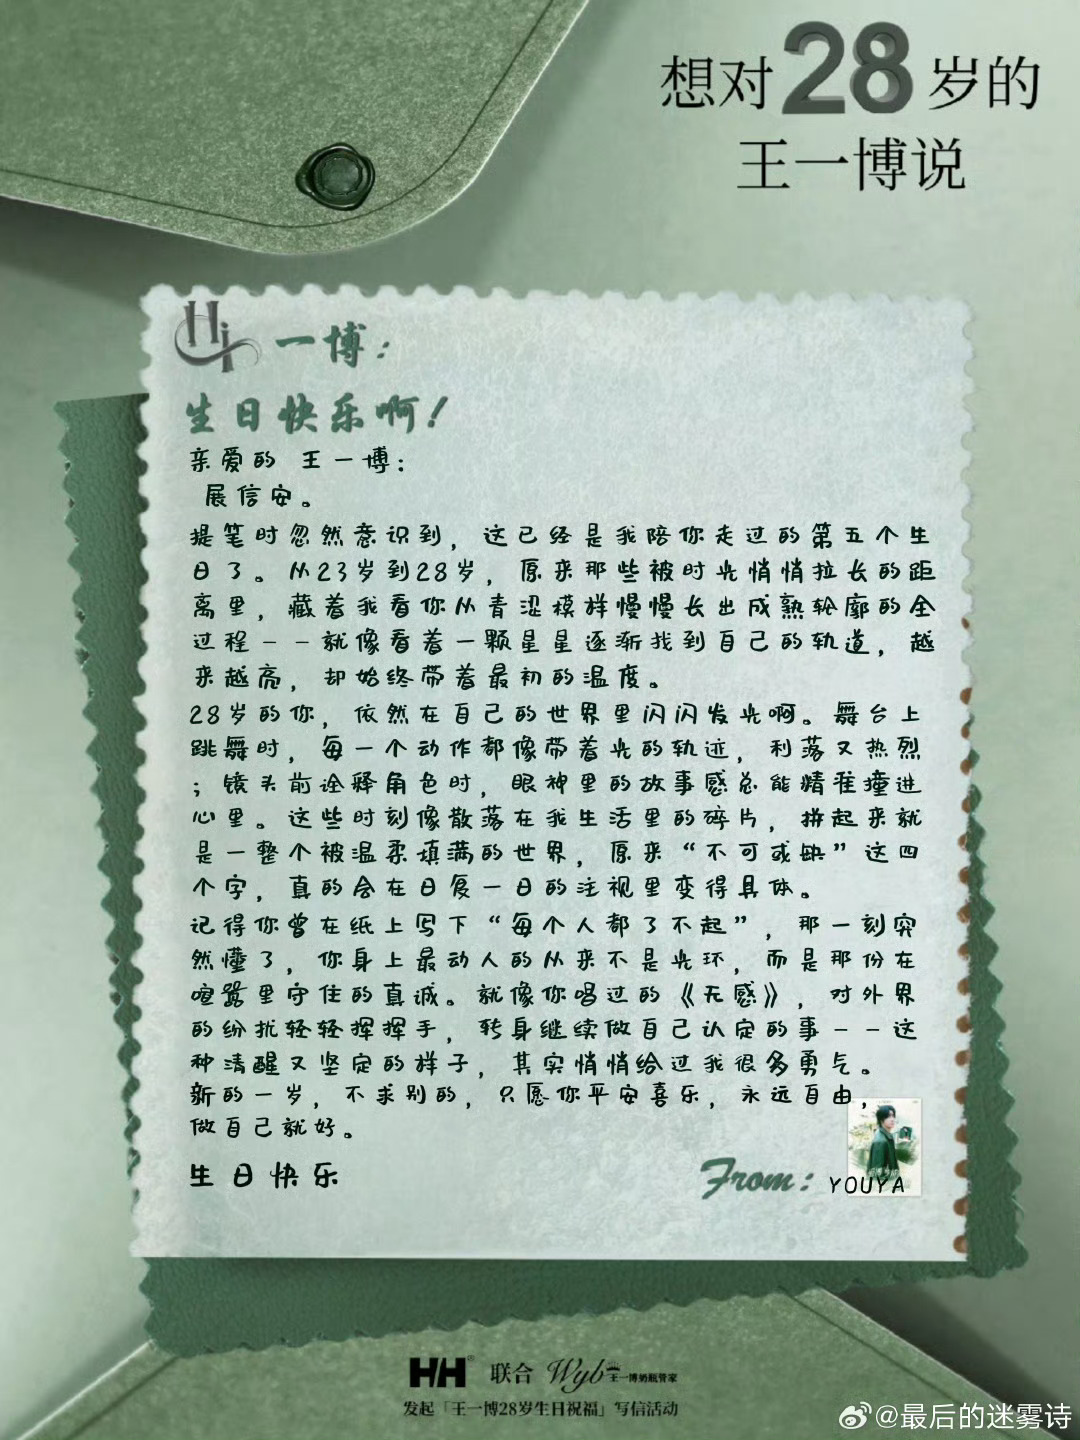 想对28岁的
王一博说
Hi 一博：
生日快乐啊！
亲爱的 王一博：
展信安。
提笔时忽然意识到，这已经是我陪你走过的第五个生
日了。从23岁到28岁，原来那些被时光悄悄拉长的距
离里，藏着我看你从青涩模样慢慢长出成熟轮廓的全
过程——就像看着一颗星星逐渐找到自己的轨道，越
来越亮，却始终带着最初的温度。
28岁的你，依然在自己的世界里闪闪发光啊。舞台上
跳舞时，每一个动作都像带着光的轨迹，利落又热烈
；镜头前诠释角色时，眼神里的故事感总能精准撞进
心里。这些时刻像散落在我生活里的碎片，拼起来就
是一整个被温柔填满的世界，原来“不可或缺”这四
个字，真的会在日复一日的注视里变得具体。
记得你曾在纸上写下“每个人都了不起”，那一刻突
然懂了，你身上最动人的从来不是光环，而是那份在
喧嚣里守住的真诚。就像你唱过的《无感》，对外界
的纷扰轻轻挥挥手，转身继续做自己认定的事——这
种清醒又坚定的样子，其实悄悄给过我很多勇气。
新的一岁，不求别的，只愿你平安喜乐，永远自由，
做自己就好。
生日快乐
From: YOUYA
HH® 联合 Wyb 王一博奶瓶管家
发起「王一博28岁生日祝福」写信活动
@最后的迷雾诗